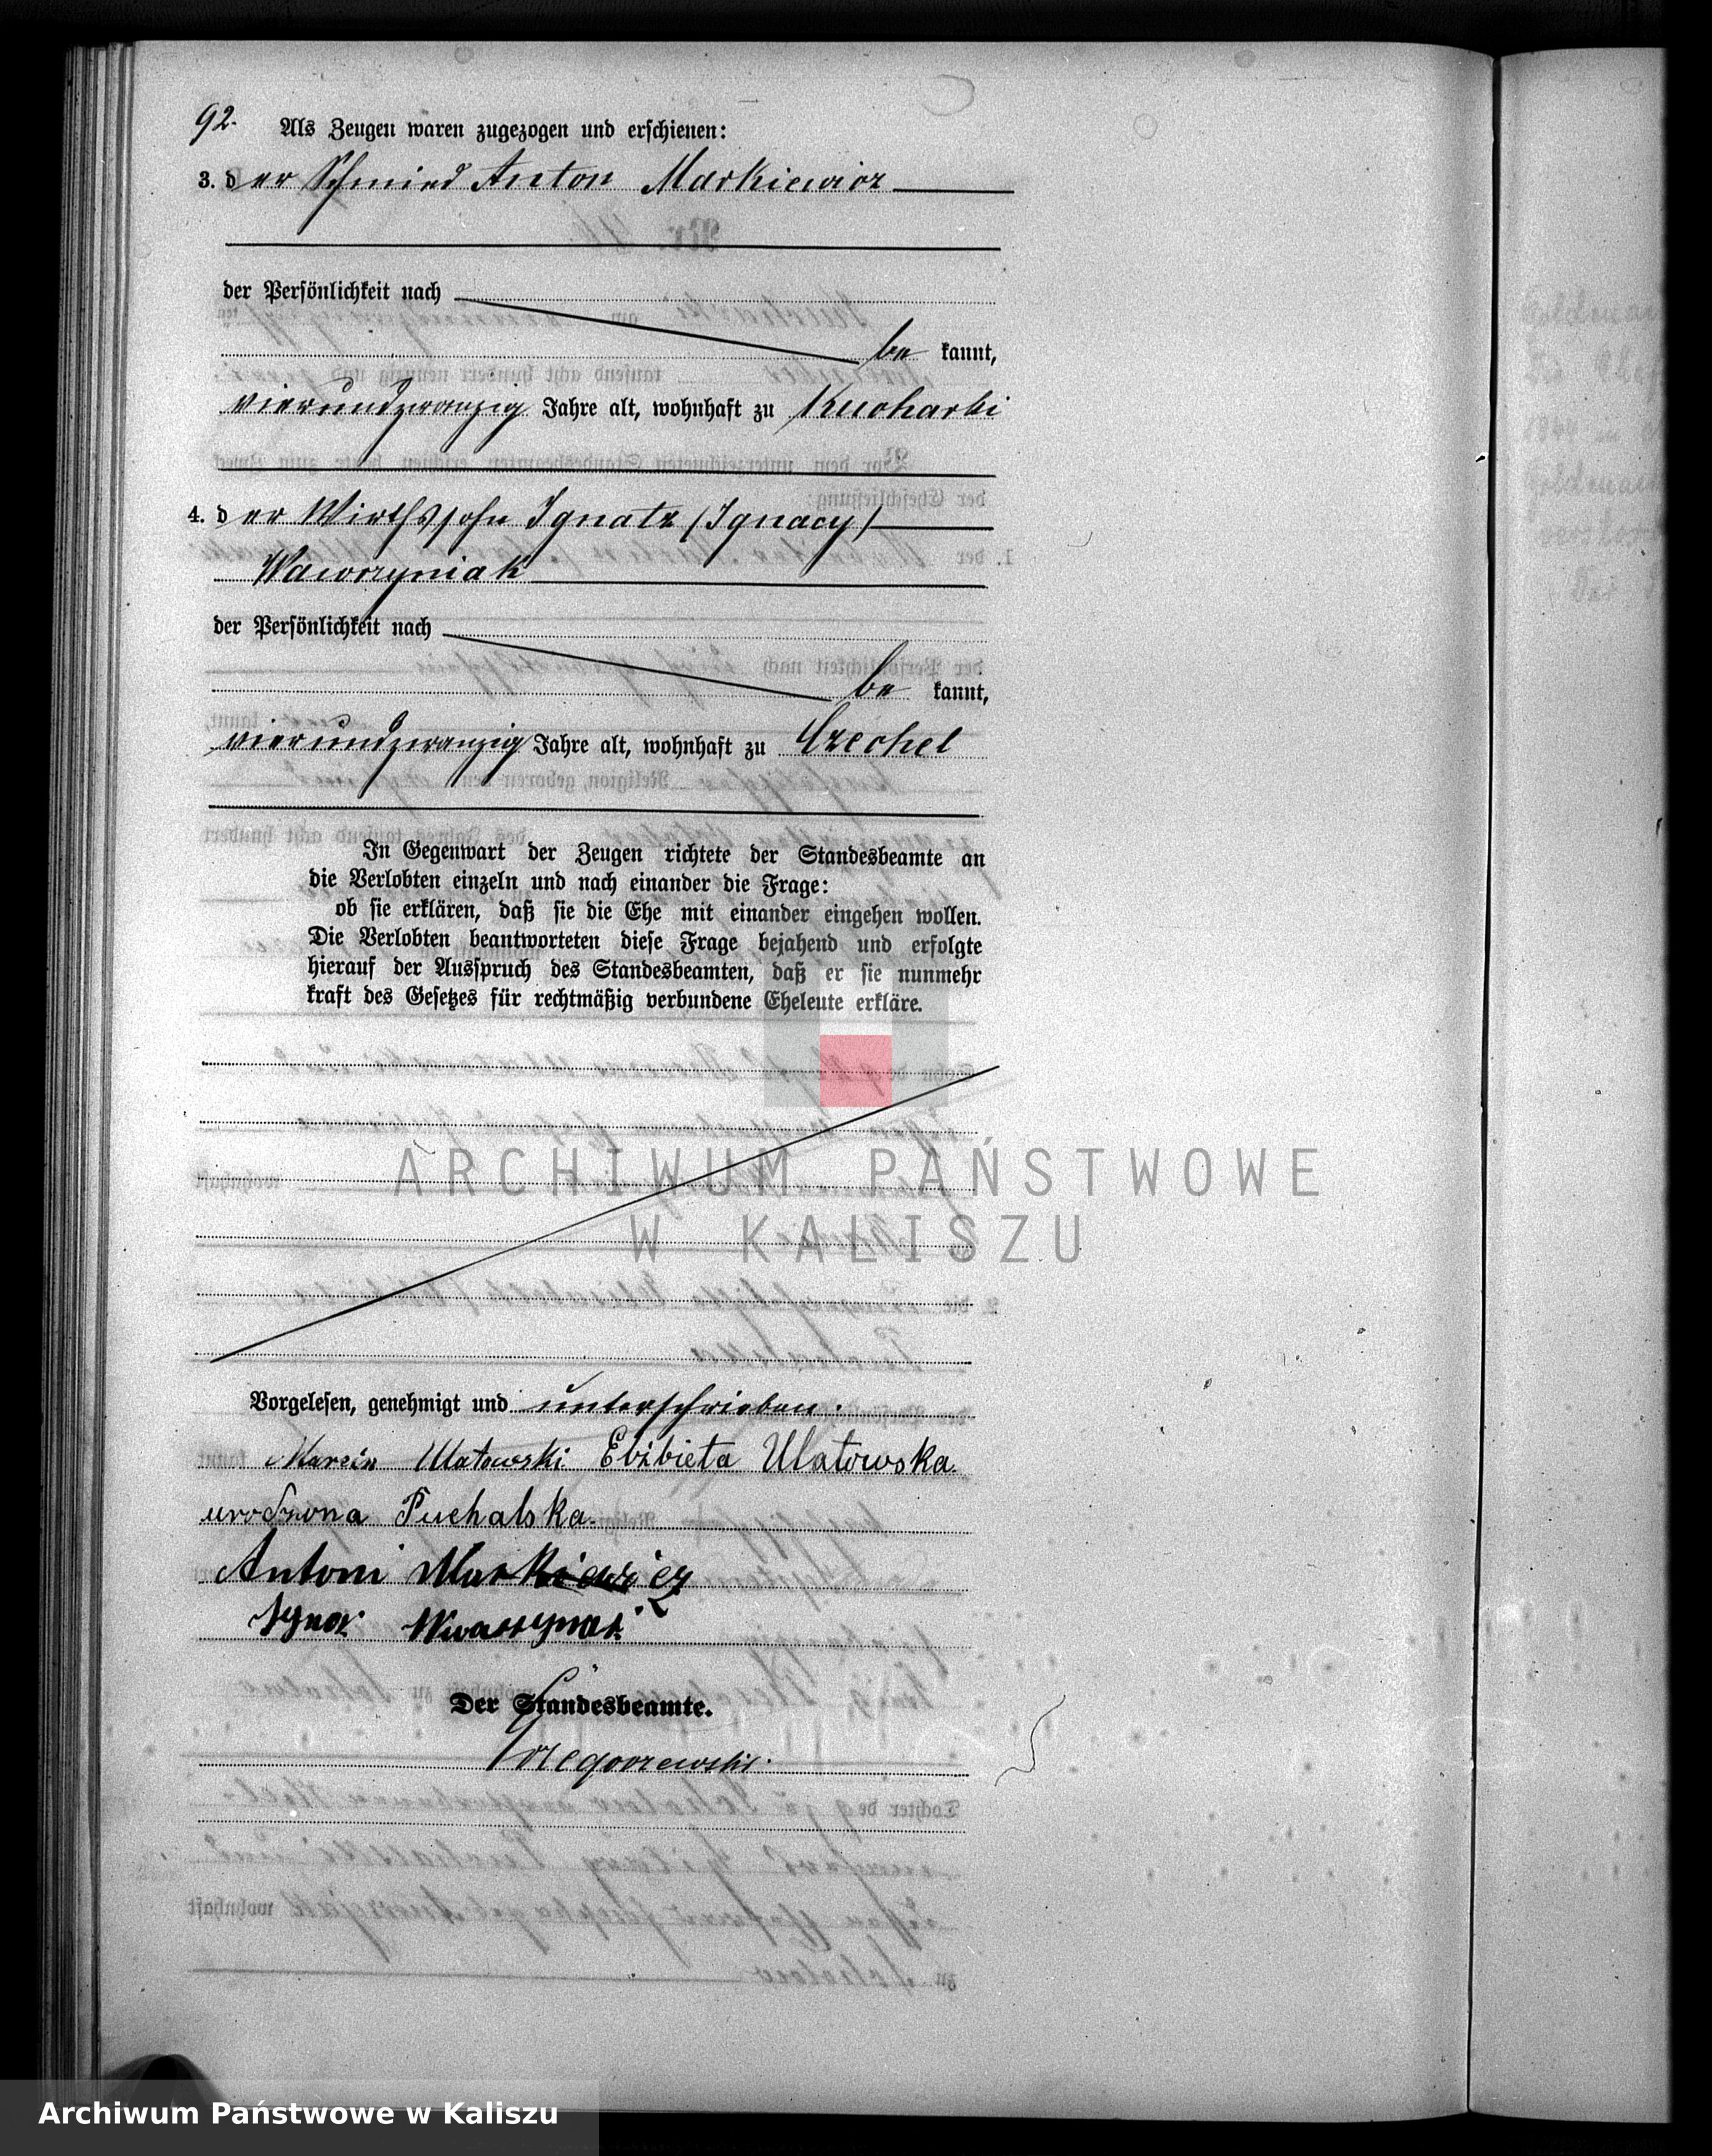 92.
Als Zeugen waren zugezogen und erschienen:
3. der Schmied Anton Markiewicz
der Persönlichkeit nach
be kannt,
vierundzwanzig Jahre alt, wohnhaft zu Kucharki
4. der Wirthssohn Ignatz (Ignacy)
Wawrzyniak
der Persönlichkeit nach
be kannt,
vierundzwanzig Jahre alt, wohnhaft zu Czechel
In Gegenwart der Zeugen richtete der Standesbeamte an
die Verlobten einzeln und nach einander die Frage:
ob sie erklären, daß sie die Ehe mit einander eingehen wollen.
Die Verlobten beantworteten diese Frage bejahend und erfolgte
hierauf der Ausspruch des Standesbeamten, daß er sie nunmehr
kraft des Gesetzes für rechtmäßig verbundene Eheleute erkläre.
ARCHIWUM PAŃSTWOWE
W KALISZU
Vorgelesen, genehmigt und unterschrieben.
Marcin Ulatowski Elżbieta Ulatowska
urodzona Puchalska.
Antoni Markiewicz
Der Standesbeamte.
Archiwum Państwowe w Kaliszu